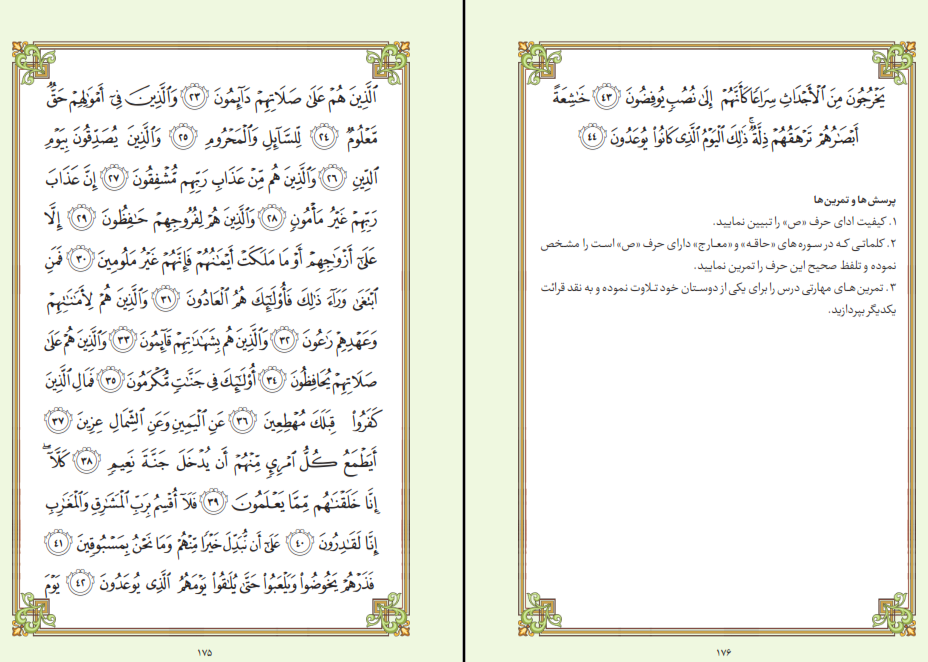 ٱلَّذِينَ هُمۡ عَلَىٰ صَلَاتِهِمۡ دَآئِمُونَ ٢٣ وَٱلَّذِينَ فِيٓ أَمۡوَٰلِهِمۡ حَقّٞ
مَّعۡلُومٞ ٢٤ لِّلسَّآئِلِ وَٱلۡمَحۡرُومِ ٢٥ وَٱلَّذِينَ يُصَدِّقُونَ بِيَوۡمِ
ٱلدِّينِ ٢٦ وَٱلَّذِينَ هُم مِّنۡ عَذَابِ رَبِّهِم مُّشۡفِقُونَ ٢٧ إِنَّ عَذَابَ
رَبِّهِمۡ غَيۡرُ مَأۡمُونٖ ٢٨ وَٱلَّذِينَ هُمۡ لِفُرُوجِهِمۡ حَٰفِظُونَ ٢٩ إِلَّا
عَلَىٰٓ أَزۡوَٰجِهِمۡ أَوۡ مَا مَلَكَتۡ أَيۡمَٰنُهُمۡ فَإِنَّهُمۡ غَيۡرُ مَلُومِينَ ٣٠ فَمَنِ
ٱبۡتَغَىٰ وَرَآءَ ذَٰلِكَ فَأُوْلَٰٓئِكَ هُمُ ٱلۡعَادُونَ ٣١ وَٱلَّذِينَ هُمۡ لِأَمَٰنَٰتِهِمۡ
وَعَهۡدِهِمۡ رَٰعُونَ ٣٢ وَٱلَّذِينَ هُم بِشَهَٰدَٰتِهِمۡ قَآئِمُونَ ٣٣ وَٱلَّذِينَ هُمۡ عَلَىٰ
صَلَاتِهِمۡ يُحَافِظُونَ ٣٤ أُوْلَٰٓئِكَ فِي جَنَّٰتٖ مُّكۡرَمُونَ ٣٥ فَمَالِ ٱلَّذِينَ
كَفَرُواْ قِبَلَكَ مُهۡطِعِينَ ٣٦ عَنِ ٱلۡيَمِينِ وَعَنِ ٱلشِّمَالِ عِزِينَ ٣٧
أَيَطۡمَعُ كُلُّ ٱمۡرِيٕٖ مِّنۡهُمۡ أَن يُدۡخَلَ جَنَّةَ نَعِيمٖ ٣٨ كَلَّآۖ
إِنَّا خَلَقۡنَٰهُم مِّمَّا يَعۡلَمُونَ ٣٩ فَلَآ أُقۡسِمُ بِرَبِّ ٱلۡمَشَٰرِقِ وَٱلۡمَغَٰرِبِ
إِنَّا لَقَٰدِرُونَ ٤٠ عَلَىٰٓ أَن نُّبَدِّلَ خَيۡرٗا مِّنۡهُمۡ وَمَا نَحۡنُ بِمَسۡبُوقِينَ ٤١
فَذَرۡهُمۡ يَخُوضُواْ وَيَلۡعَبُواْ حَتَّىٰ يُلَٰقُواْ يَوۡمَهُمُ ٱلَّذِي يُوعَدُونَ ٤٢ يَوۡمَ
١٧٥
يَخۡرُجُونَ مِنَ ٱلۡأَجۡدَاثِ سِرَاعٗا كَأَنَّهُمۡ إِلَىٰ نُصُبٖ يُوفِضُونَ ٤٣ خَٰشِعَةً
أَبۡصَٰرُهُمۡ تَرۡهَقُهُمۡ ذِلَّةٞۚ ذَٰلِكَ ٱلۡيَوۡمُ ٱلَّذِي كَانُواْ يُوعَدُونَ ٤٤
پرسش‌ها و تمرین‌ها
۱. کیفیت ادای حرف «ص» را تبیین نمایید.
۲. کلماتی که در سوره‌های «حاقه» و «معارج» دارای حرف «ص» است را مشخص
نموده و تلفظ صحیح این حرف را تمرین نمایید.
۳. تمرین‌های مهارتی درس را برای یکی از دوستان خود تلاوت نموده و به نقد قرائت
یکدیگر بپردازید.
١٧۶